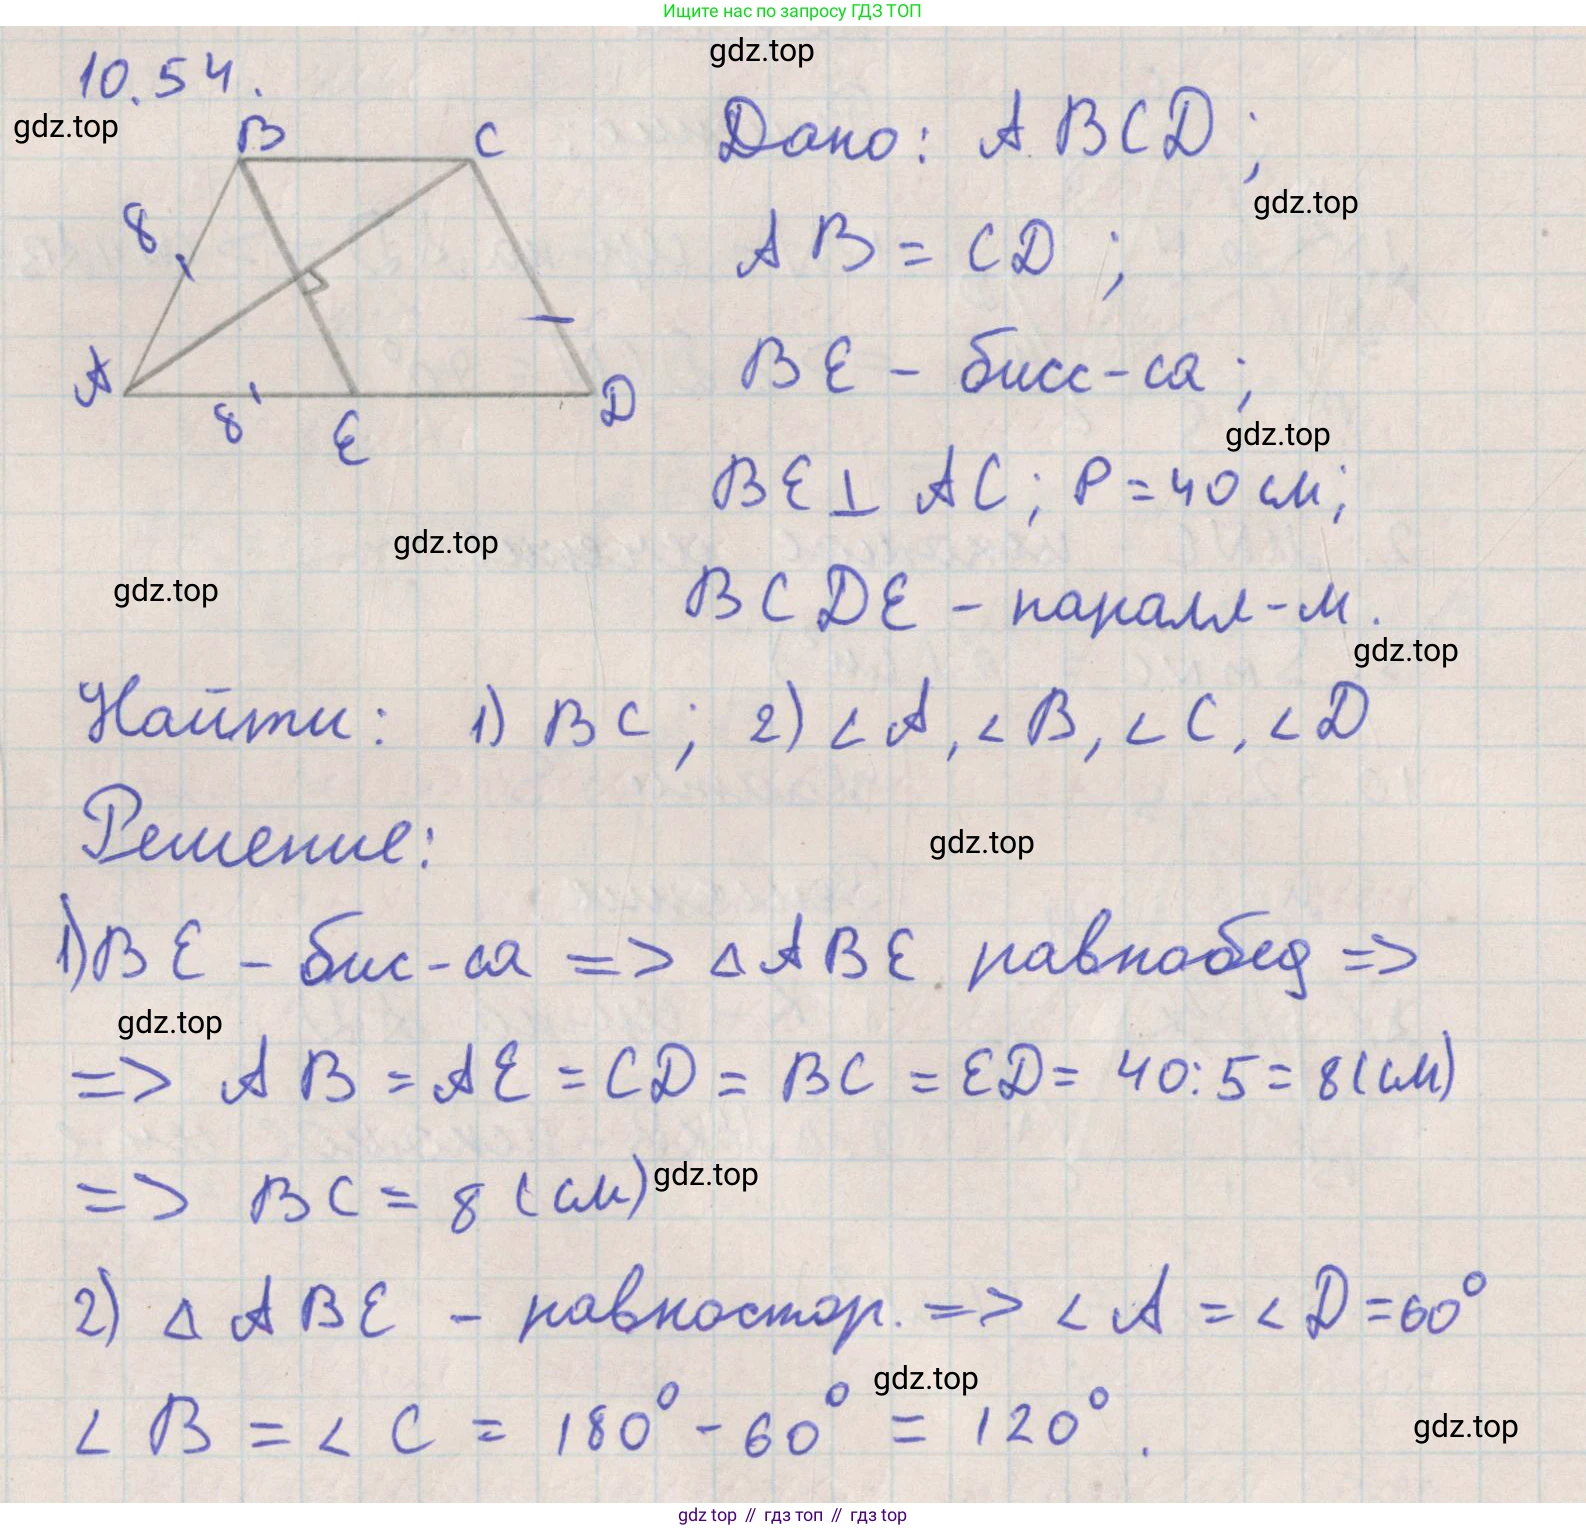 Ищите нас по запросу ГДЗ ТОП
gdz.top
10.54.
gdz.top
B C
Дано: ABCD;
gdz.top
8
AB = CD;
BE - бисс-са;
A 8 E D
gdz.top
BE ⊥ AC; P = 40 см;
gdz.top
gdz.top
BCDE - паралл-м.
gdz.top
Найти: 1) BC; 2) ∠A, ∠B, ∠C, ∠D
Решение:
gdz.top
1) BE - бис-са => △ABE равнобед =>
gdz.top
=> AB = AE = CD = BC = ED = 40:5 = 8 (см)
=> BC = 8 (см)
gdz.top
2) △ABE - равностор. => ∠A = ∠D = 60°
gdz.top
∠B = ∠C = 180° - 60° = 120°.
gdz.top
gdz top // гдз топ // гдз top